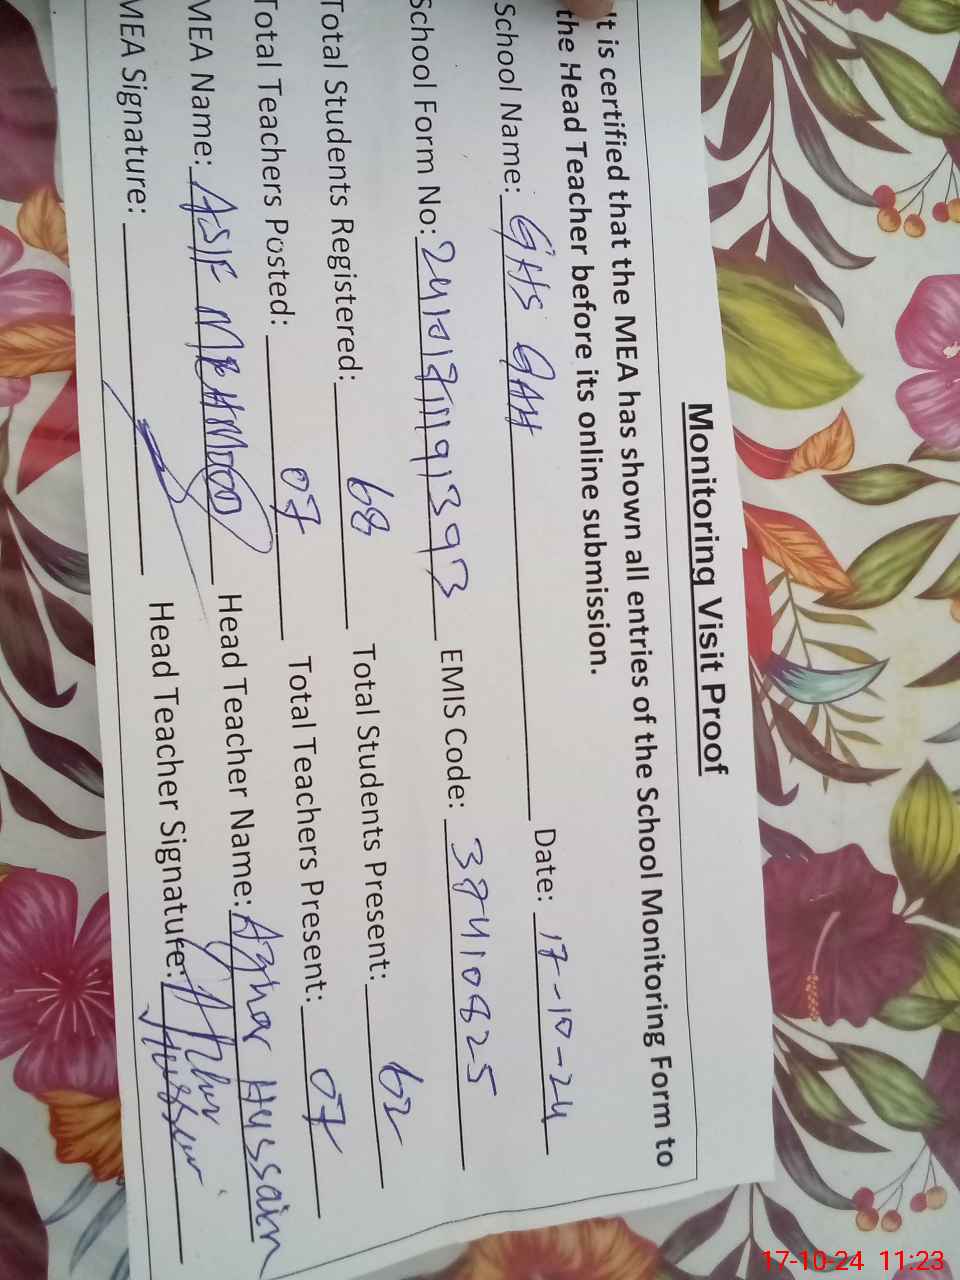 Monitoring Visit Proof
It is certified that the MEA has shown all entries of the School Monitoring Form to
the Head Teacher before its online submission.
School Name: GHS GAH Date: 17-10-24
School Form No: EMIS Code:
Total Students Registered: 68 Total Students Present: 62
Total Teachers Posted: 07 Total Teachers Present: 07
MEA Name: ASIF MEHMOOD Head Teacher Name: Azhar Hussain
MEA Signature: Head Teacher Signature: Hussain
17-10-24 11:23